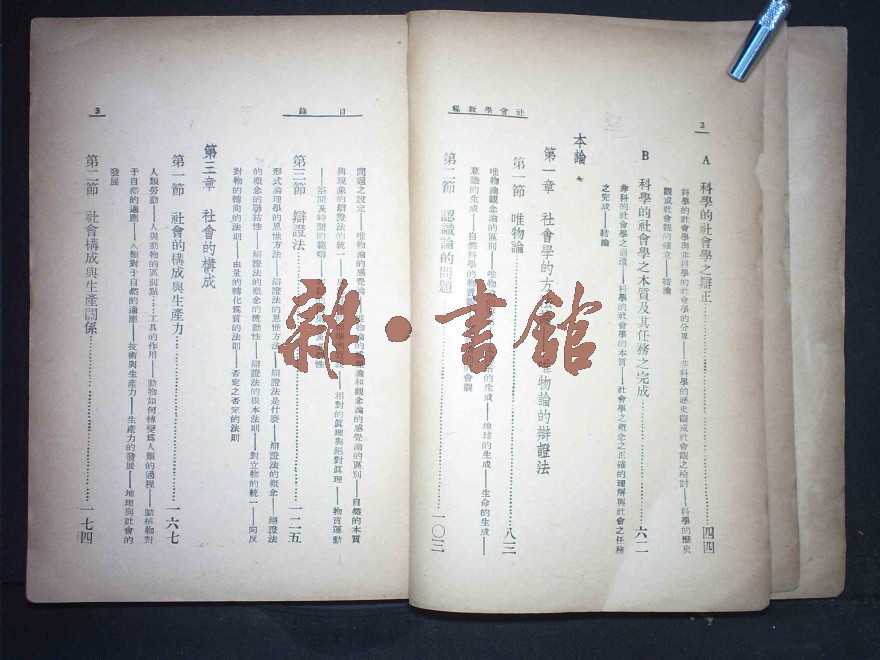 2
社會學敎程
A 科學的社會學之辯正……四四
科學的社會學與非科學的社會學的分界——非科學的歷史觀或社會觀之檢討——科學的歷史
觀或社會觀的確立——結論
B 科學的社會學之本質及其任務之完成……六二
非科的社會學之崩潰——科學的社會學的本質——社會學之概念之正確的理解與社會之任務
之完成——結論
本論
第一章 社會學的方 唯物論的辯證法
第一節 唯物論……八三
唯物論觀念論的區別——唯物 的生成——地球的生成——生命的生成——
意識的生成——自然科學的物質 會觀
第二節 認識論的問題……一〇三
目錄
3
問題之設定——唯物論的感覺 論和觀念論的感覺論的區別——自然的本質
與現象的辯證法的統一 相對的眞理與絕對眞理——物質運動
——空間及時間的範疇 性
第三節 辯證法……一二五
形式論理學的思惟方法——辯證法的思惟方法——辯證法是什麼——辯證法的概念——辯證法
的概念的聯結性——辯證法的概念的流動性——辯證法的根本法則——對立物的統一——向反
對物的轉向的法則——由量的轉化爲質的法則——否定之否定的法則
第三章 社會的構成
第一節 社會的構成與生產力……一六七
人類勞動——人與動物的區別點……工具的作用——動物如何轉變爲人類的過程——動植物對
于自然的適應——人類對于自然的適應——技術與生產力——生產力的發展——地理與社會的
發展
第二節 社會構成與生產關係……一七四
雜·書館